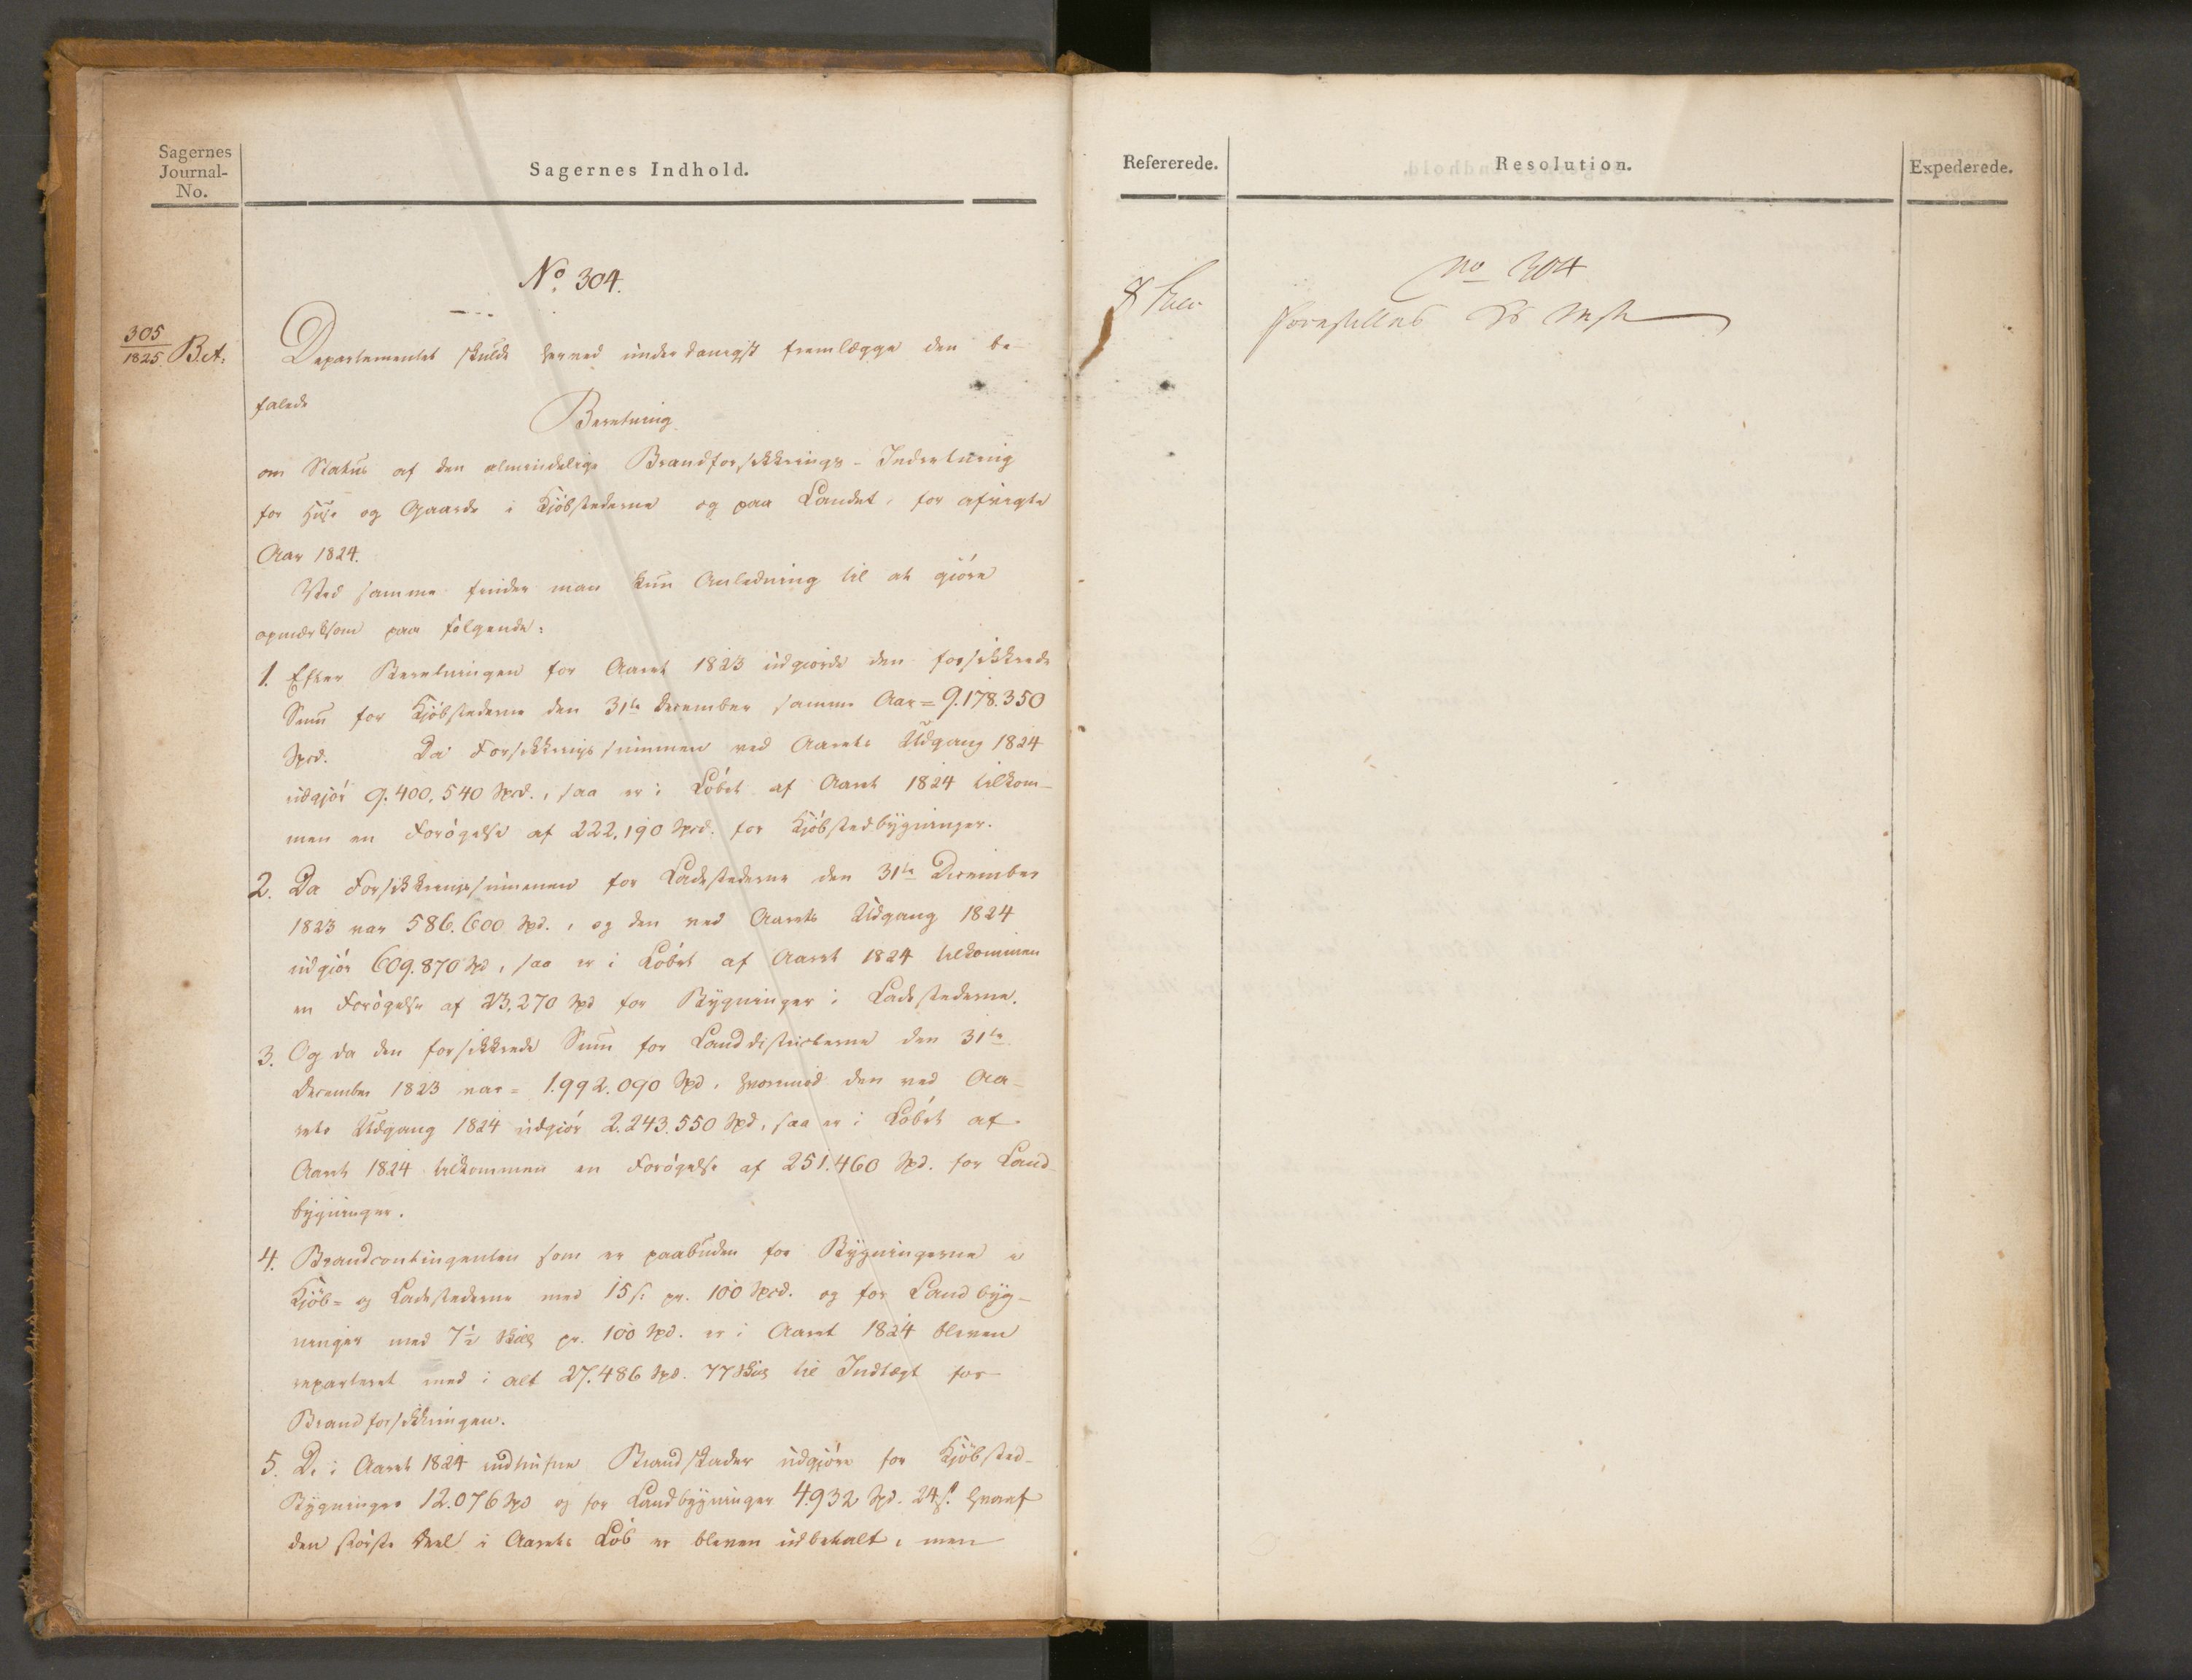 Sagernes
Journal-
No.
Sagernes Indhold.
No. 304.
305
1825. B.A.
Departementet skulde herved underdanigst fremlægge den be-
falede
Beretning
om Status af den almindelige Brandforsikkrings-Indretning
for Huse og Gaarde i Kjöbstederne og paa Landet, for afvigte
Aar 1824.
Ved samme finder man kun Anledning til at giöre
opmærksom paa fölgende:
1. Efter Beretningen for Aaret 1823 udgiorde den forsikkrede
Sum for Kjöbstederne den 31te December samme Aar = 9.178.350
Spd. Da Forsikkringssummen ved Aarets Udgang 1824
udgjör 9.400.540 Spd., saa er i Löbet af Aaret 1824 tilkom-
men en Forögelse af 222.190 Spd. for Kjöbstedbygninger.
2. Da Forsikkringssummen for Ladestederne den 31te December
1823 var 586.600 Spd., og den ved Aarets Udgang 1824
udgiör 609.870 Spd, saa er i Löbet af Aaret 1824 tilkommen
en Forögelse af 23,270 Spd for Bygninger i Ladestederne.
3. Og da den forsikkrede Sum for Landdistricterne den 31te
December 1823 var = 1.992.090 Spd, hvorimod den ved Aa-
rets Udgang 1824 udgiör 2.243.550 Spd, saa er i Löbet af
Aaret 1824 tilkommen en Forögelse af 251.460 Spd. for Land-
bygninger.
4. Brandcontingenten som er paabuden for Bygningerne i
Kjöb- og Ladestederne med 15 s. pr. 100 Spd. og for Landbyg-
ninger med 7½ Skill pr. 100 Spd. er i Aaret 1824 bleven
reparteret med i alt 27.486 Spd. 77 Skill til Indtægt for
Brandforsikkringen.
5. De i Aaret 1824 indtrufne Brandskader udgjöre for Kjöbsted-
Bygninger 12.076 Spd og for Landbygninger 4.932 Spd. 24 s. hvoraf
den störste Deel i Aarets Löb er bleven udbetalt, men
Refererede.
Resolution.
Expederede.
8
No 304
Forestilles